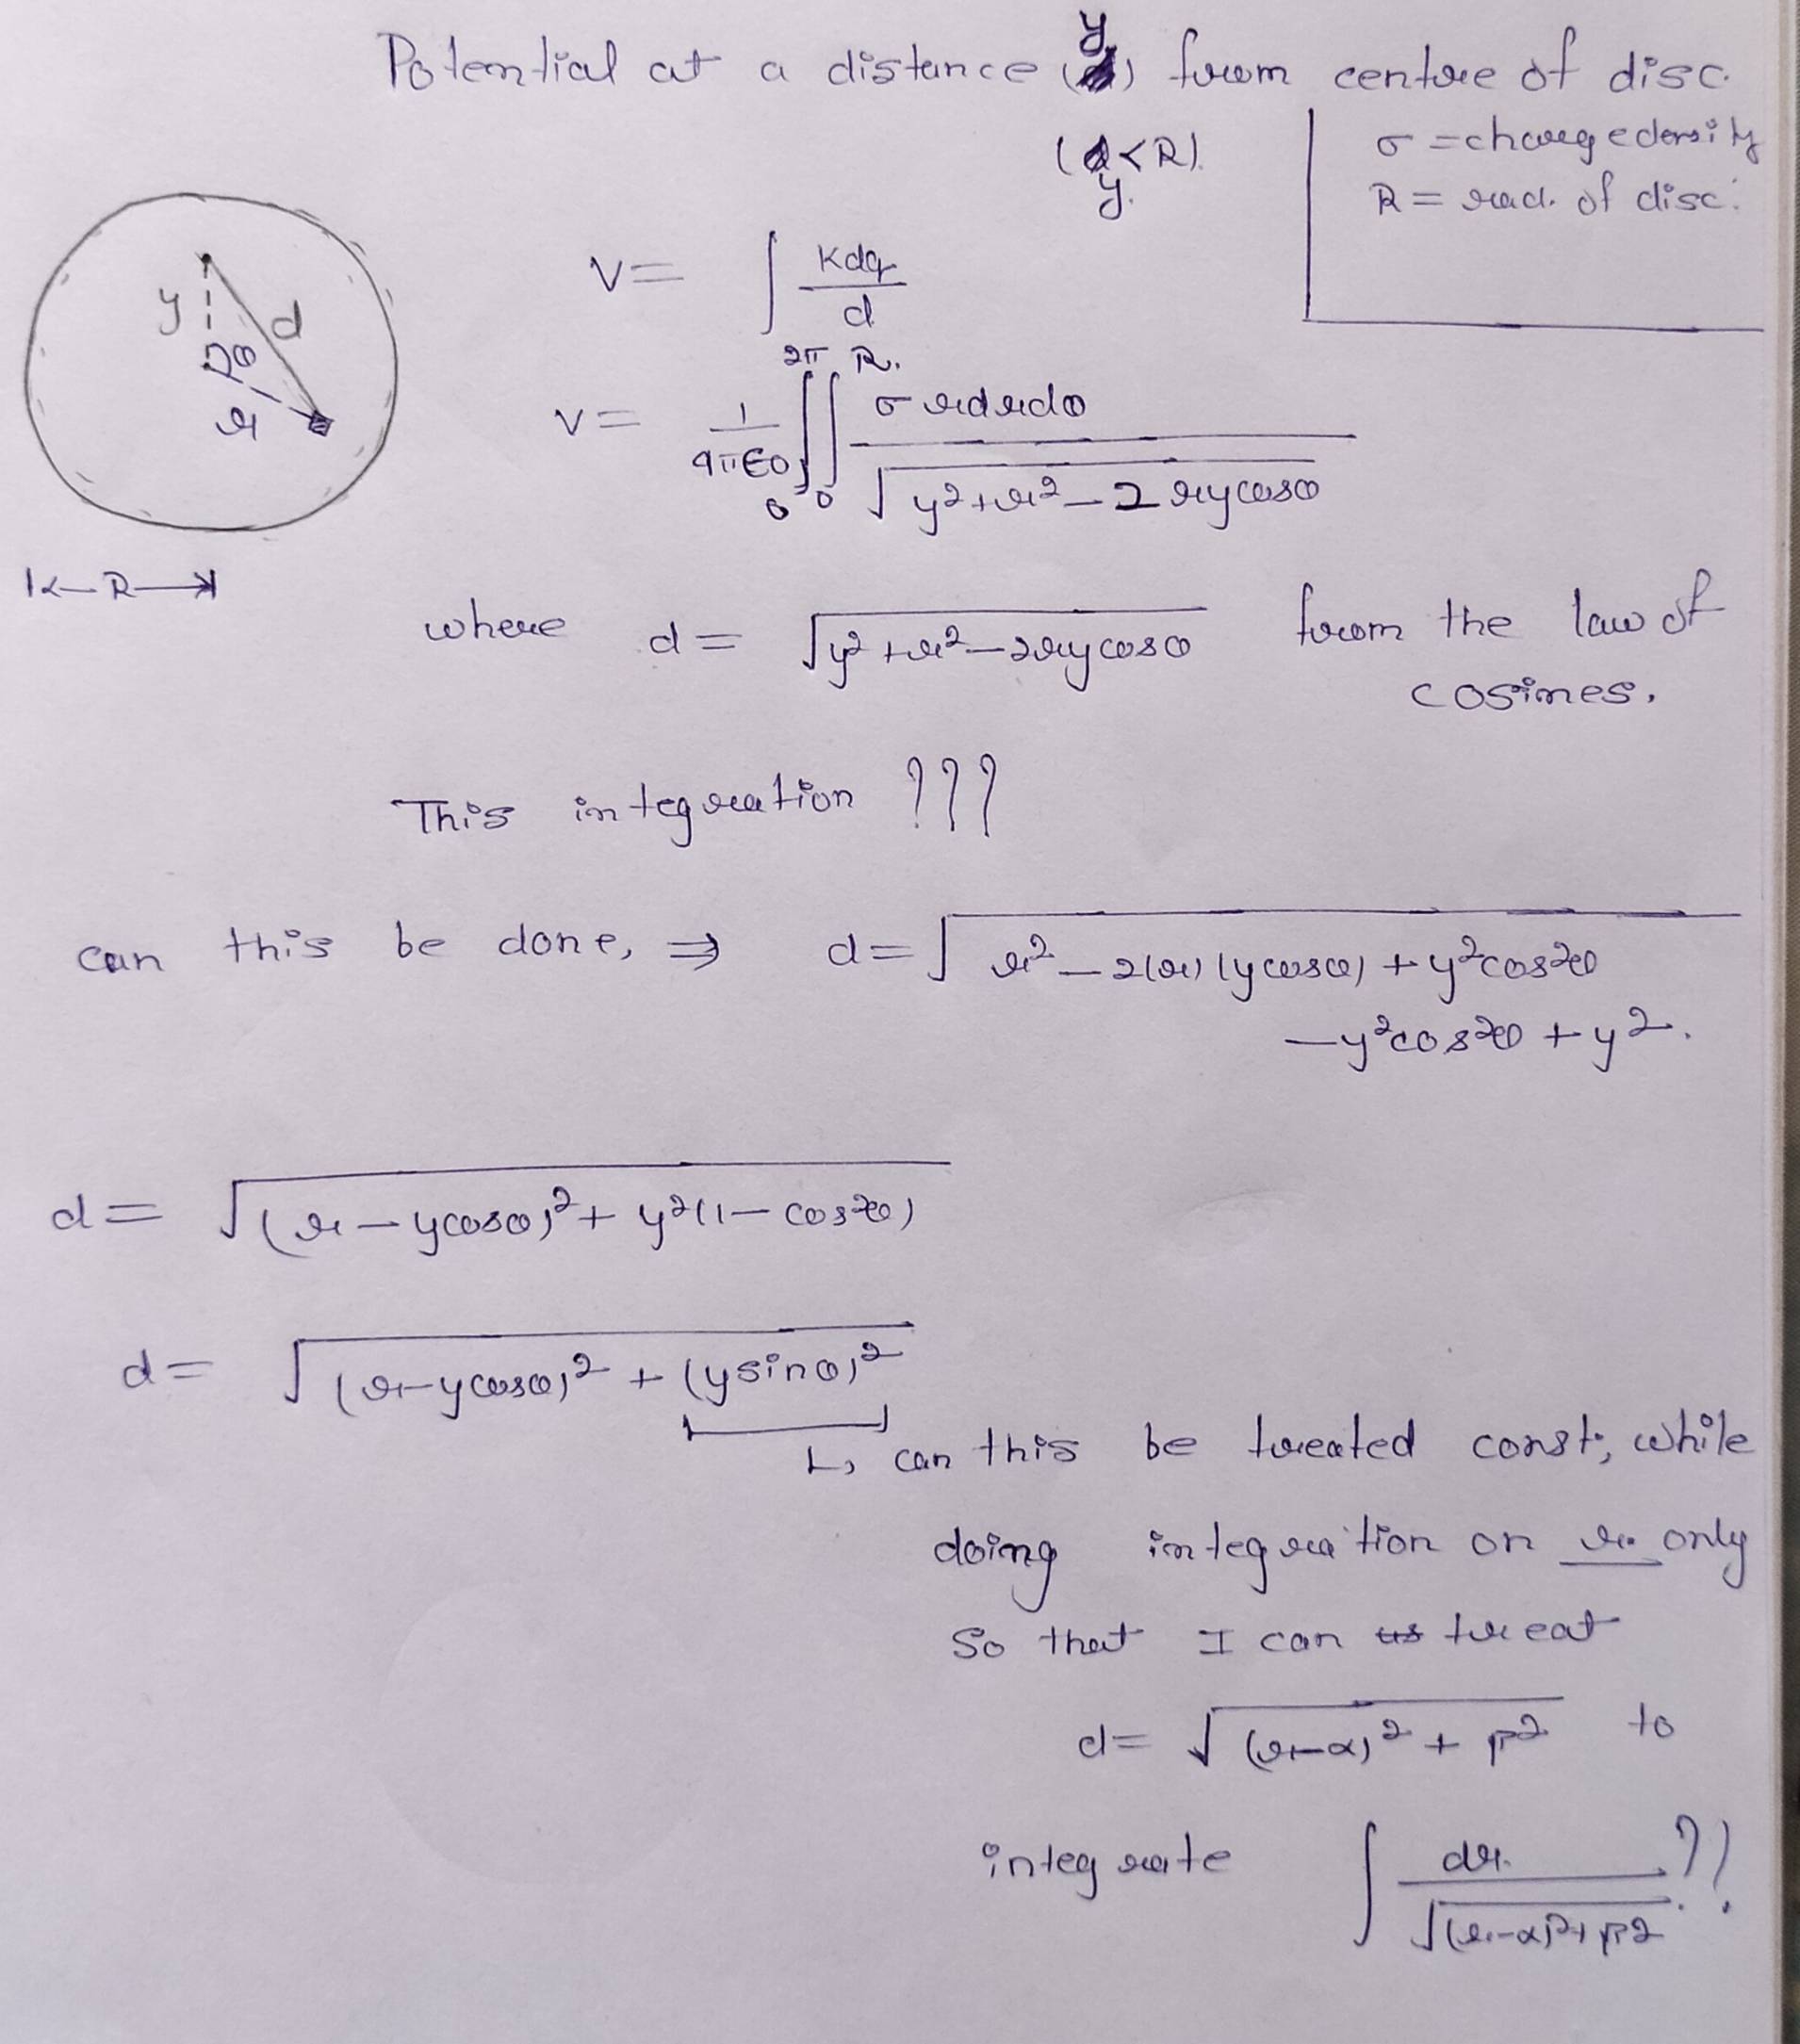 Potential at a distance (y) from centre of disc.
(y<R).
σ = charge density
R = rad. of disc.
V = ∫ Kdq / d
y d θ r
V = 1/4πε0 ∫₀^2π ∫₀^R σ r dr dθ / √(y²+r²-2rycosθ)
|<-R->|
where d = √(y²+r²-2rycosθ) from the law of
cosines.
This integration ???
can this be done, ⇒ d = √(r²-2(r)(ycosθ)+y²cos²θ
-y²cos²θ+y².
d = √((r-ycosθ)²+y²(1-cos²θ))
d = √((r-ycosθ)²+(ysinθ)²)
↳ can this be treated const, while
doing integration on r only
So that I can treat
d = √((r-α)²+β²) to
integrate ∫ dr / √((r-α)²+β²) ??